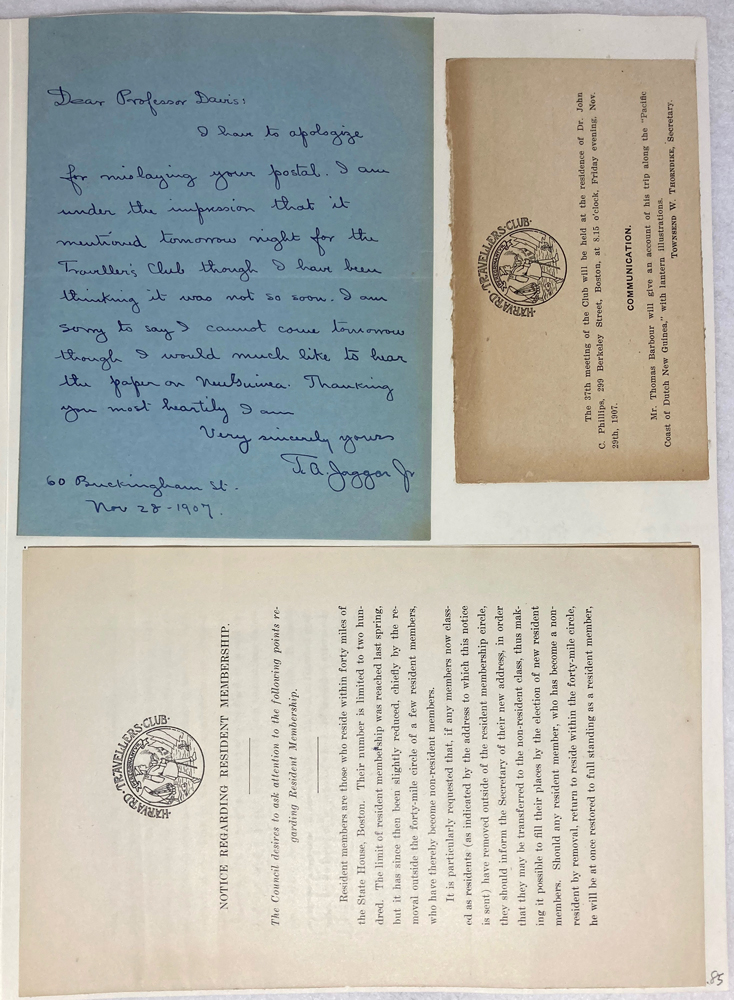 Dear Professor Davis:
I have to apologize
for mislaying your postal. I am
under the impression that it
mentioned tomorrow night for the
Traveller's Club though I have been
thinking it was not so soon. I am
sorry to say I cannot come tomorrow
though I would much like to hear
the paper on New Guinea. Thanking
you most heartily I am
Very sincerely yours
T.A. Jaggar Jr
60 Buckingham St.
Nov 28-1907.
HARVARD·TRAVELLERS·CLUB·
The 37th meeting of the Club will be held at the residence of Dr. John
C. Phillips, 299 Berkeley Street, Boston, at 8.15 o'clock, Friday evening, Nov.
29th, 1907.
COMMUNICATION.
Mr. Thomas Barbour will give an account of his trip along the "Pacific
Coast of Dutch New Guinea," with lantern illustrations.
TOWNSEND W. THORNDIKE, Secretary.
HARVARD·TRAVELLERS·CLUB·
NOTICE REGARDING RESIDENT MEMBERSHIP.
The Council desires to ask attention to the following points re-
garding Resident Membership.
Resident members are those who reside within forty miles of
the State House, Boston. Their number is limited to two hun-
dred. The limit of resident membership was reached last spring,
but it has since then been slightly reduced, chiefly by the re-
moval outside the forty-mile circle of a few resident members,
who have thereby become non-resident members.
It is particularly requested that, if any members now class-
ed as residents (as indicated by the address to which this notice
is sent) have removed outside of the resident membership circle,
they should inform the Secretary of their new address, in order
that they may be transferred to the non-resident class, thus mak-
ing it possible to fill their places by the election of new resident
members. Should any resident member, who has become a non-
resident by removal, return to reside within the forty-mile circle,
he will be at once restored to full standing as a resident member,
85